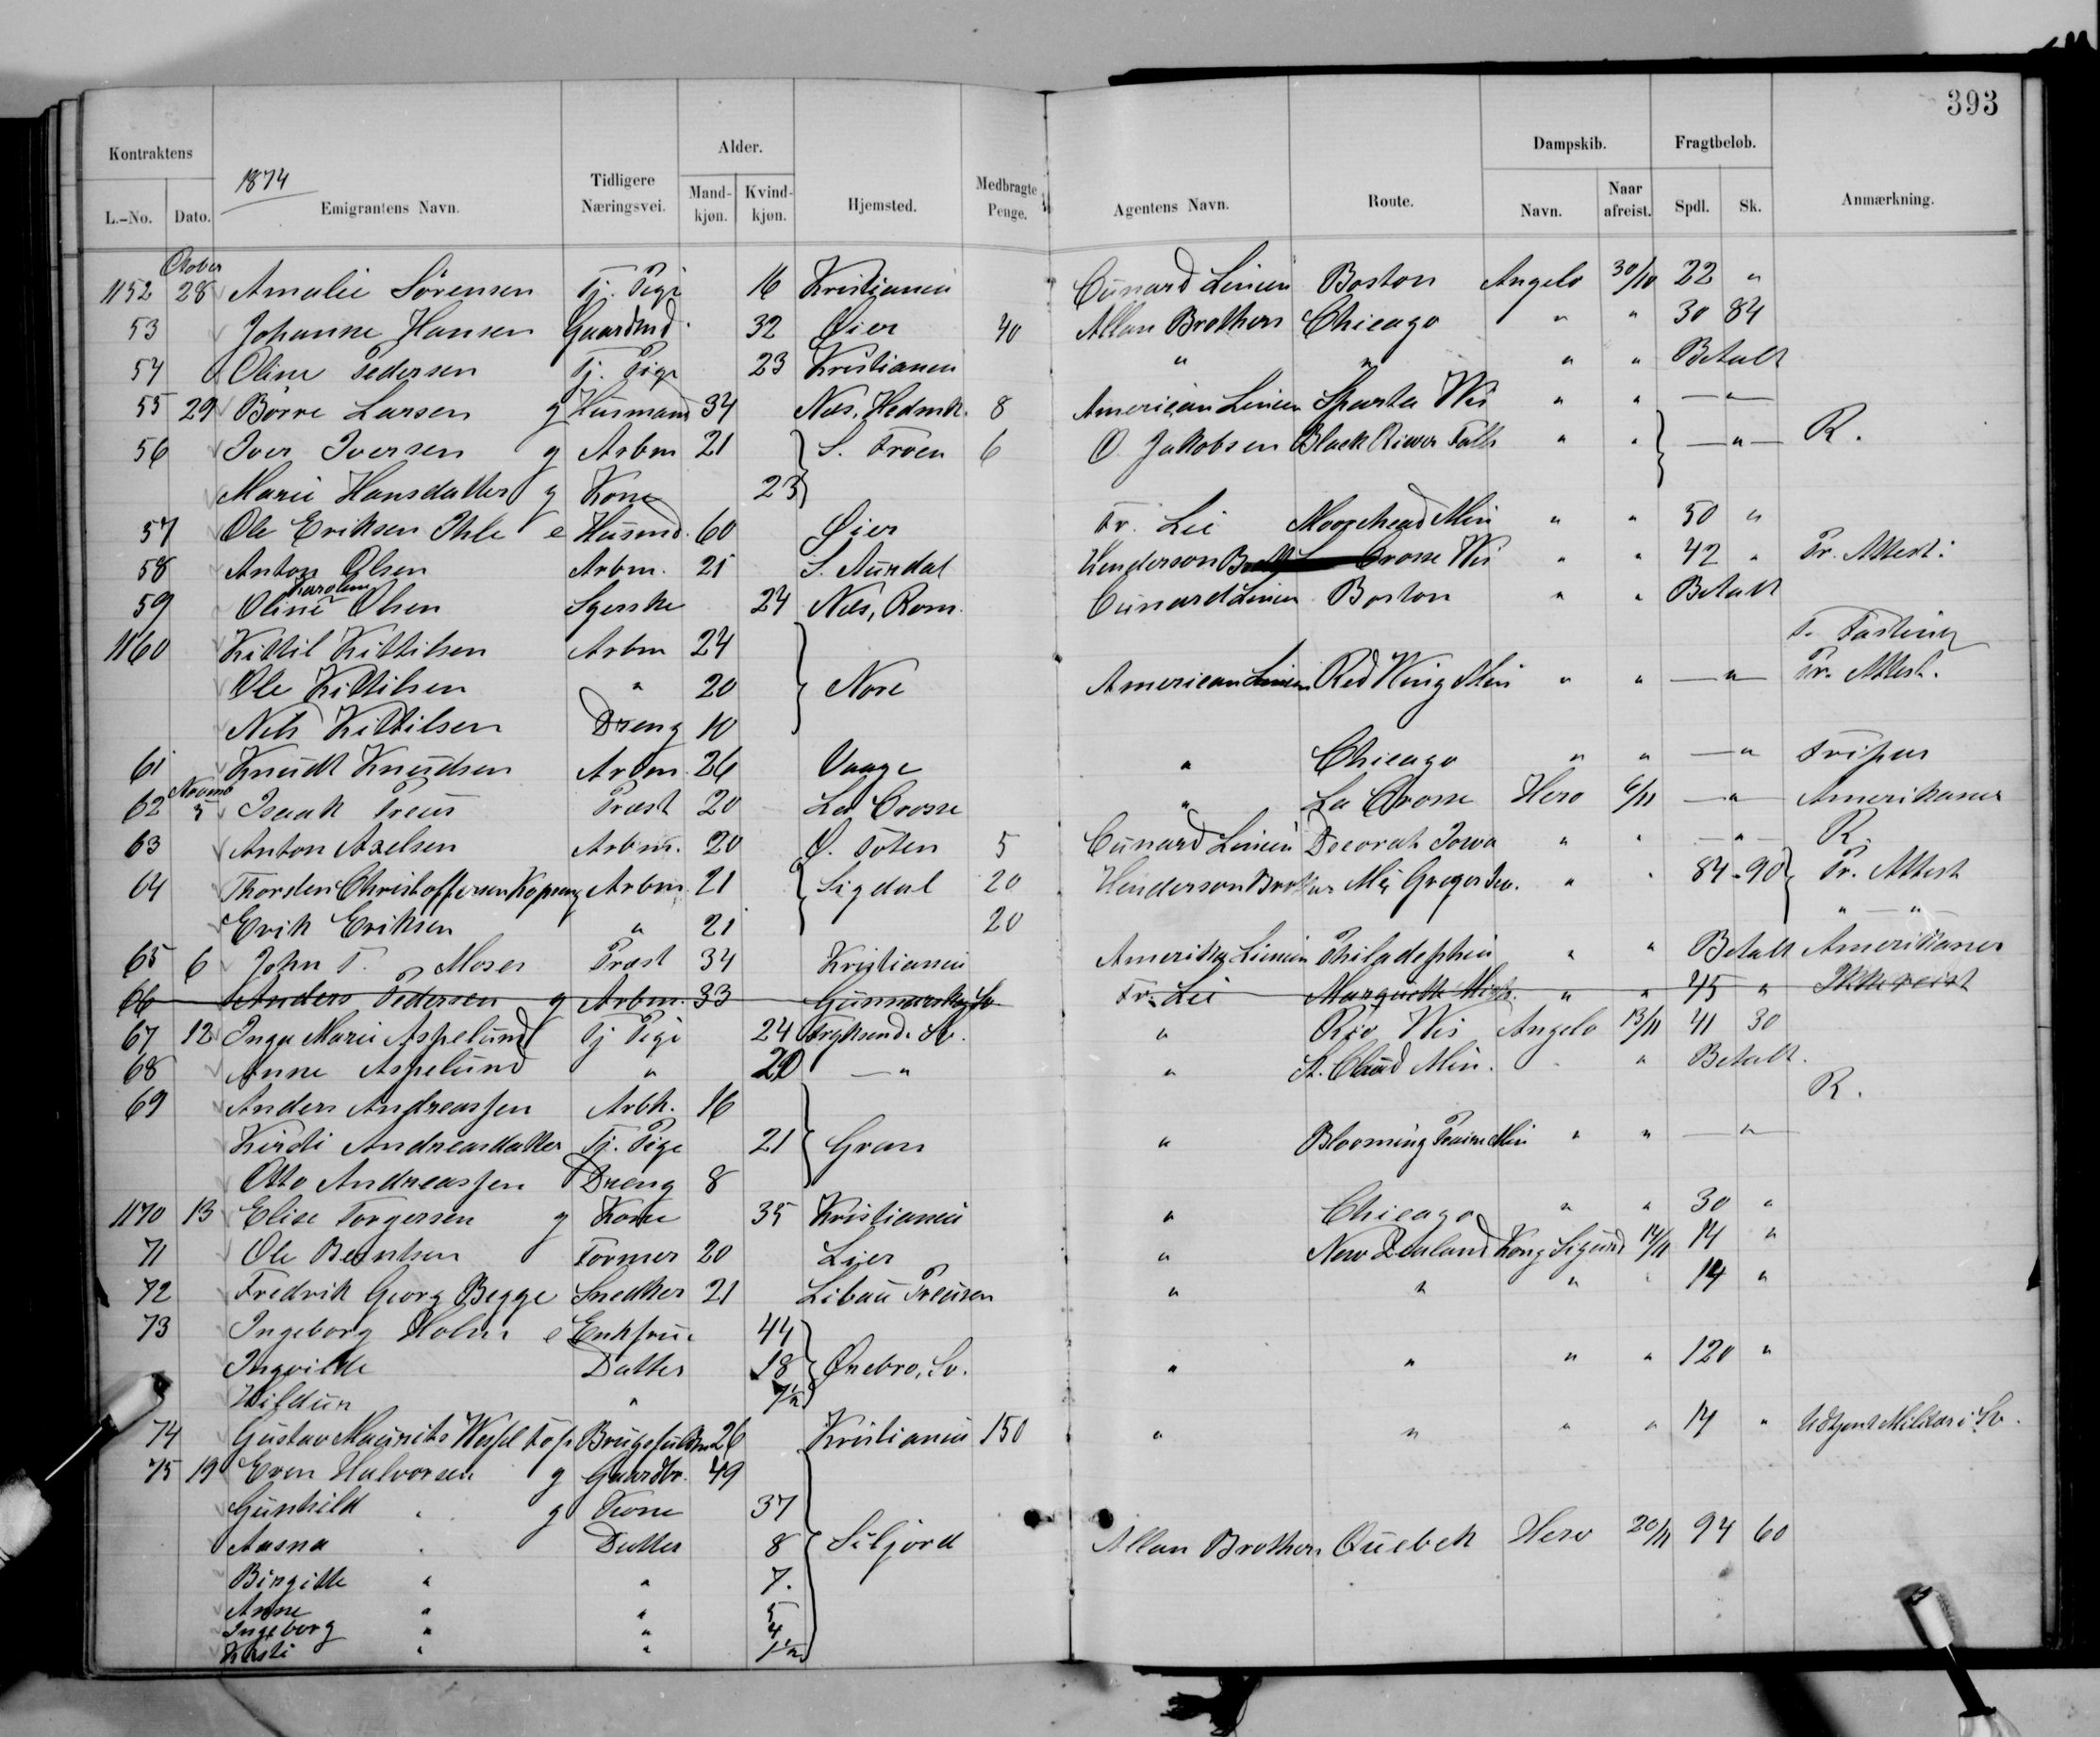 393
Kontraktens
1874
Emigrantens Navn.
Tidligere Næringsvei.
Alder.
Hjemsted.
Medbragte Penge.
Agentens Navn.
Route.
Dampskib.
Fragtbeløb.
Anmærkning.
L.-No. Dato. Mand-kjøn. Kvind-kjøn. Navn. Naar afreist. Spdl. Sk.
October
1152 28 Amalie Sørensen Tj. Pige 16 Kristiania Cunard Linien Boston Angelo 30/10 22 "
53 Johanne Hansen Gaardmd. 32 Øier 40 Allan Brothers Chicago " " 30 84
54 Oline Pedersen Tj. Pige 23 Kristiania " " " " Betalt
55 29 Børre Larsen g Husmand 34 Næs, Hedmk. 8 American Linien Sparta Wis " " — " —
56 Iver Iversen g Arbm 21 S. Froen 6 O. Jakobsen Black River Falls " " — " — R.
Marie Hansdatter g Kone 23
57 Ole Eriksen Ihle e Husmd. 60 Øier Fr. Lie Moorehead Min " " 50 "
58 Anton Olsen Arbm. 21 S. Aurdal Henderson Broth Crosse Wis " " 42 " Pr. Attest.
59 Oline Karoline Olsen Syerske 24 Næs, Rom. Cunard Linien Boston " " Betalt
1160 Kittil Kittilsen Arbm 24 T. Fasting
Ole Kittilsen " 20 Nore American Linien Red Wing Min " " — " — Pr. Attest.
Nels Kittilsen Dreng 10
61 Knudt Knudsen Arbm. 26 Vaage " Chicago " " — "
Novmb
62 5 Isaak Preus Præst 20 La Crosse " La Crosse Hero 6/11 — " — Amerikaner
63 Anton Axelsen Arbm. 20 Ø. Toten 5 Cunard Linien Decorah Iowa " " — " — R.
64 Thorsten Christoffersen Arbm 21 Sigdal 20 Henderson Brothers Mc Gregor Iow. " " 84 - 90 Pr. Attest
Erik Eriksen " 21 20 " — "
65 6 John T. Moses Præst 34 Kristiania Amerika Linien Philadephia " " Betalt Amerikaner
66 Anders Pedersen g Arbm. 33 Gunnarskog Sv Fr. Lie Marquette Mich. " " 45 " Ikke reist
67 12 Inga Marie Aspelund Tj Pige 24 Fryksende Sv. " Rio Wis Angelo 13/11 41 30
68 Anne Aspelund " 20 — " " St. Cloud Min. " Betalt.
69 Anders Andreassen Arbk. 16 R.
Kirsti Andreasdatter Tj. Pige 21 Gran " Blooming Prairie Min " " — " —
Otto Andreassen Dreng 8
1170 13 Elise Torgersen g Kone 35 Kristiania " Chicago " " 30 "
71 Ole Berntsen Former 20 Lier " New Zealand Kong Sigurd 14/11 14 "
72 Fredrik Georg Begge Snedker 21 Libau Preusen " " " " 14 "
73 Ingeborg Holm e Enkfrue 44
Ingvilde Datter 18 Ørebro, Sv. " " " " 120 "
Hildur " 7 1/2
74 Gustav Maurits 26 Kristiania 150 " " " " 14 " Udtjent Militær i Sv.
75 19 Even Halvorsen g Gaardbr. 49
Gunhild " g Kone 37
Aasna " Datter 8 Siljord Allan Brothers Quebek Hero 20/11 94 60
Birgitte " " 7.
Anne " " 5
Ingeborg " " 4
Kirsti " " 1 1/2